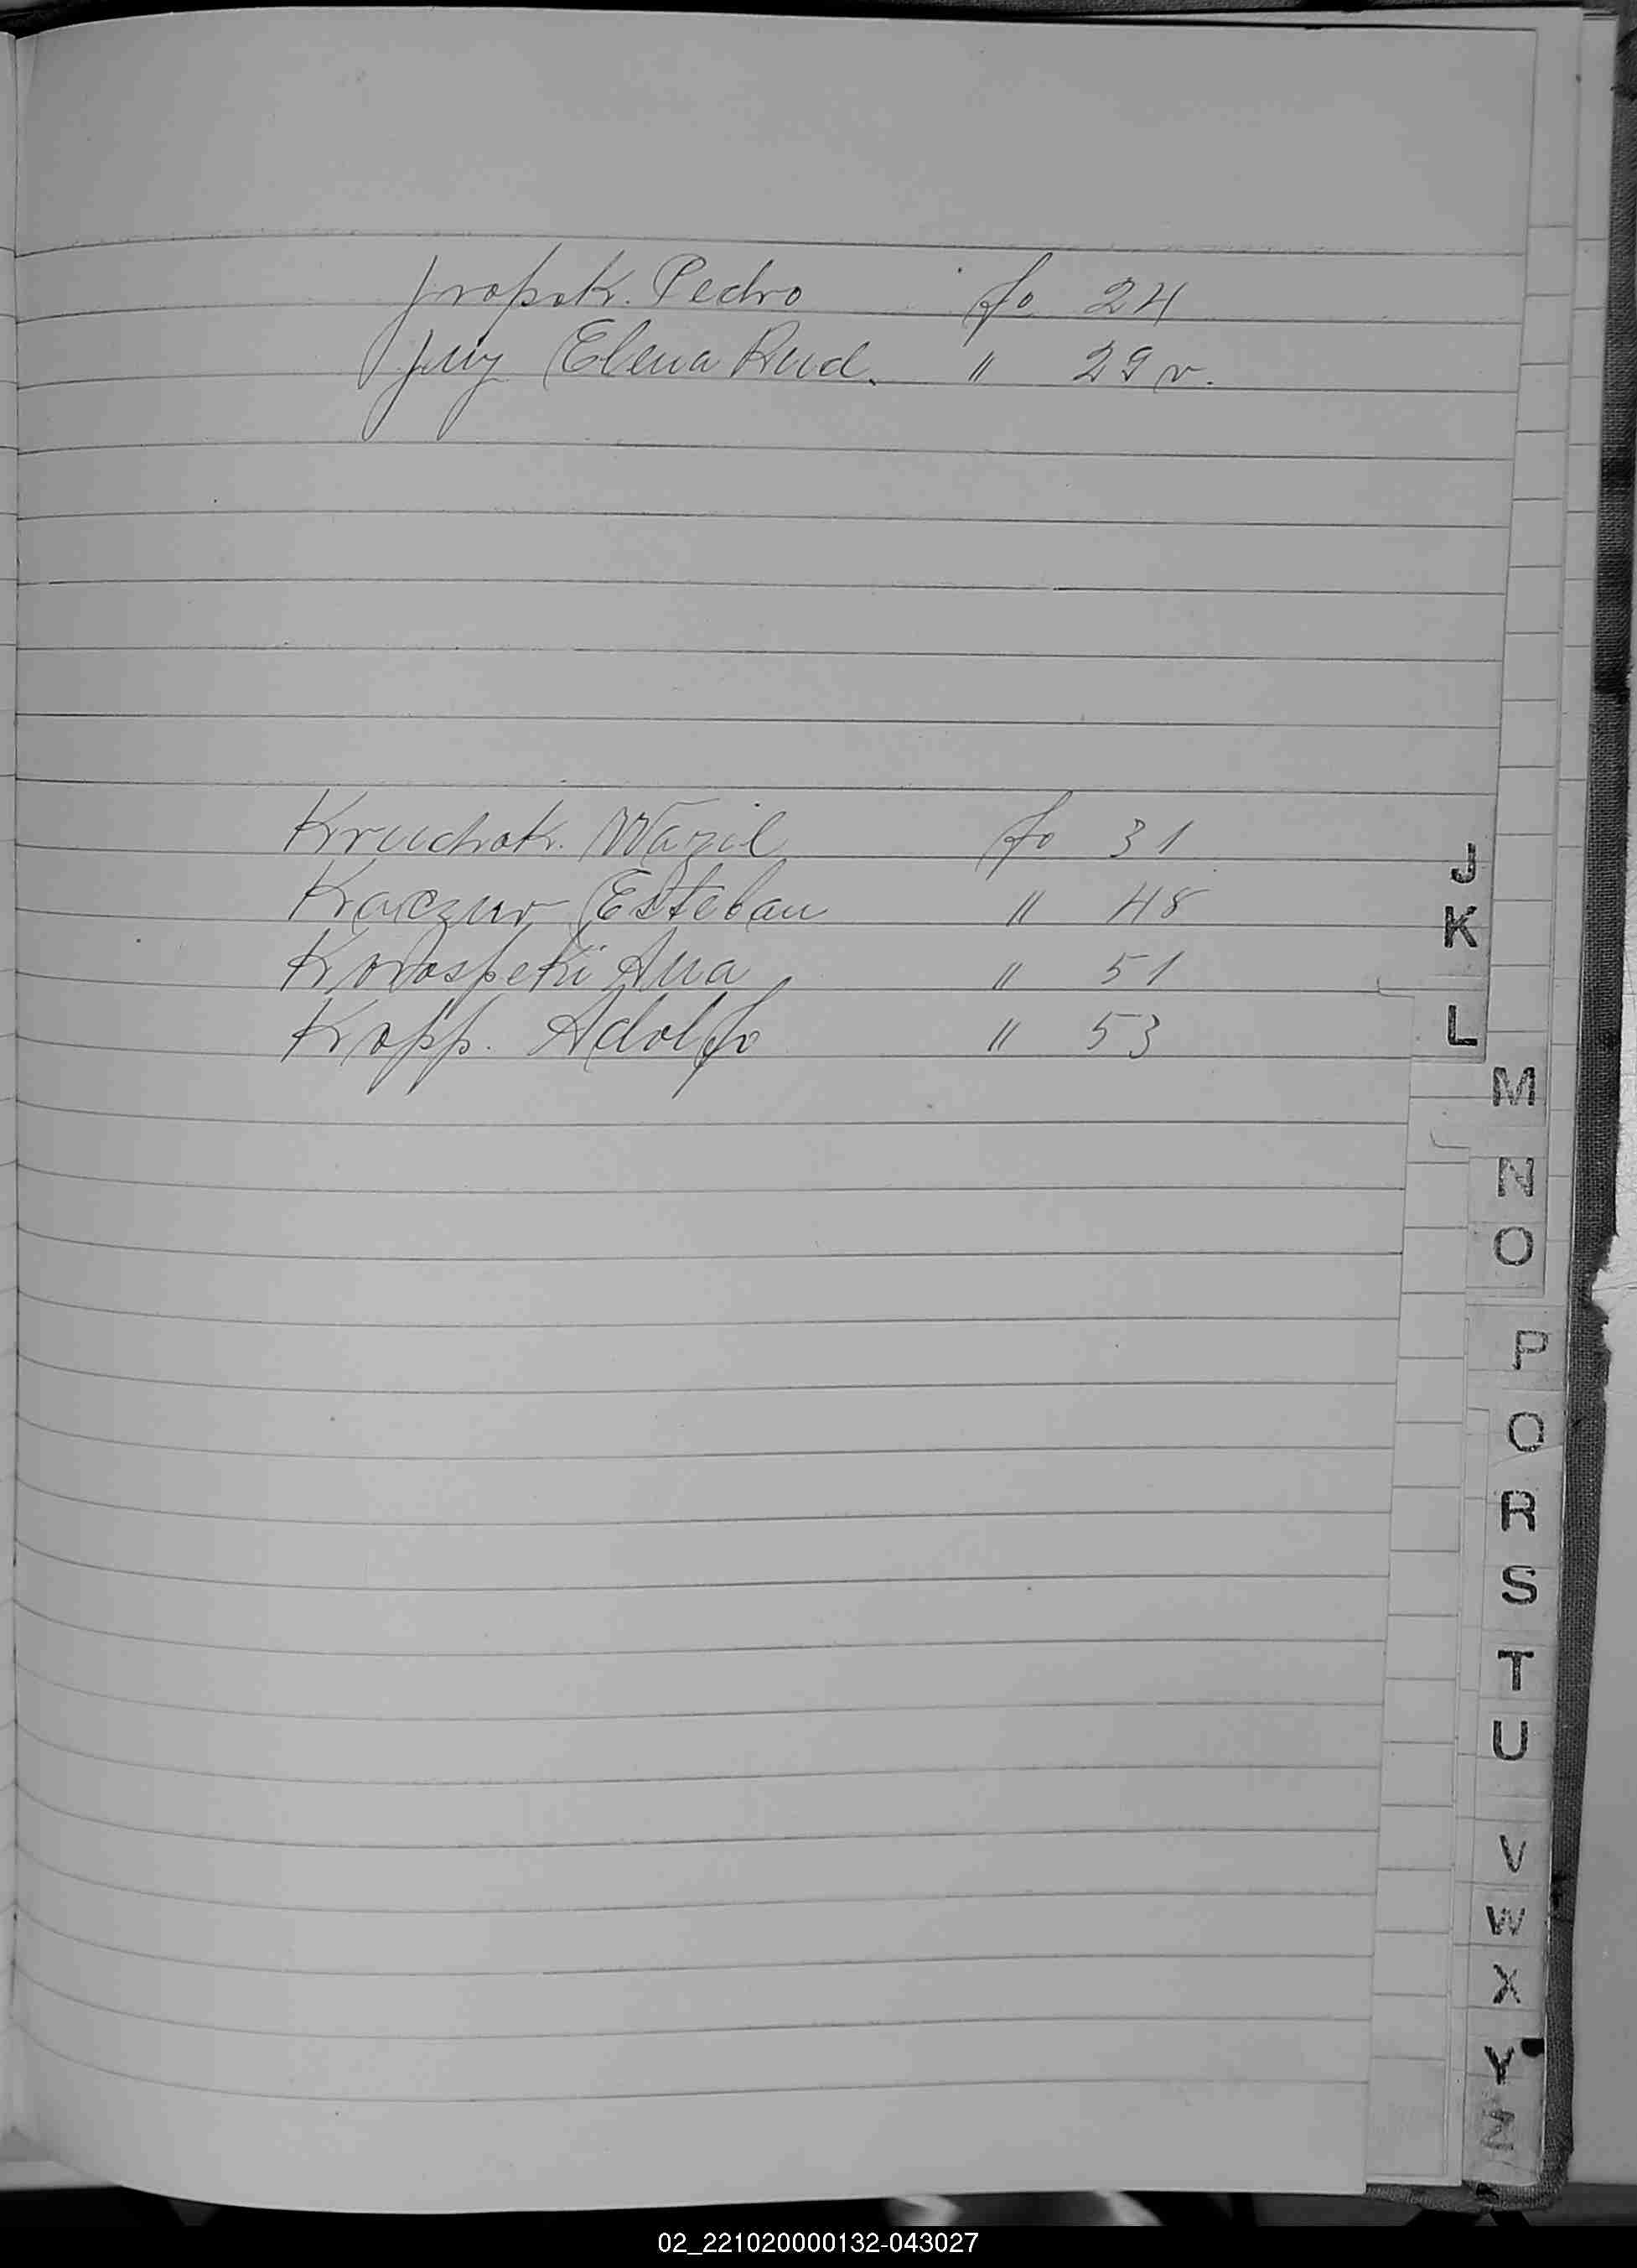 Jropok. Pedro fo 24
Juy Elena Rud. " 29 v.
Kruchok. Wazil fo 31
Kaczur Esteban " 48
Ana " 51
Kopp. Adolfo " 53
J
K
L
M
N
O
P
Q
R
S
T
U
V
W
X
Y
Z
02_221020000132-043027